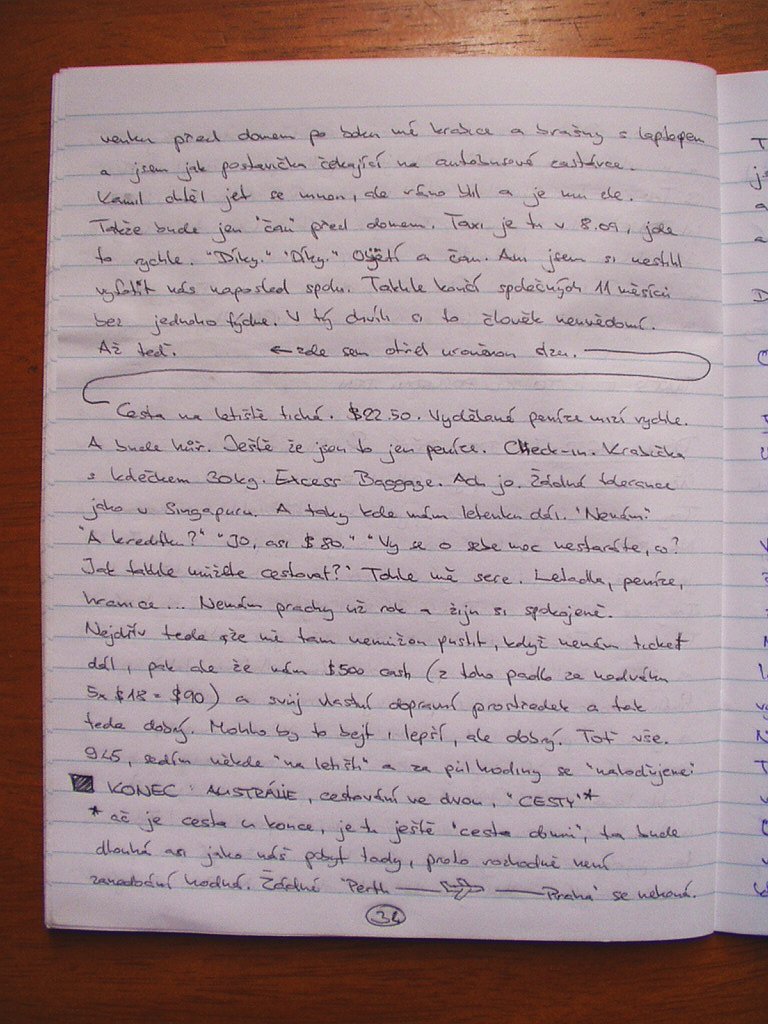 venku před domem po boku mé krabice a brašny s laptopem
a jsem jak postavička čekající na autobusové zastávce.
Kamil chtěl jet se mnou, ale ráno blil a je mu zle.
Takže bude jen "čau" před domem. Taxi je tu v 8.09, jde
to rychle. "Díky." "Díky." Objetí a čau. Ani jsem si nestihl
vyfotit nás naposled spolu. Takhle končí společných 11 měsíců
bez jednoho týdne. V tý chvíli si to člověk neuvědomí.
Až teď. ← zde sem otřel uroněnou slzu.
Cesta na letiště tichá. $22.50. Vydělané peníze mizí rychle.
A bude hůř. Ještě že jsou to jen peníze. Check-in. Krabička
s kdečkem 30kg. Excess Baggage. Ach jo. Žádná tolerance
jako v Singapuru. A taky kde mám letenku dál. "Nemám"
"A kreditku?" "JO, asi $80." "Vy se o sebe moc nestaráte, co?
Jak takhle můžete cestovat?" Tohle mě sere. Letadla, peníze,
hranice... Nemám prachy už rok a žiju si spokojeně.
Nejdřív teda že mě tam nemůžou pustit, když nemám ticket
dál, pak ale že mám $500 cash (z toho padlo za nadváhu
5x $18 = $90) a svůj vlastní dopravní prostředek a tak
teda dobrý. Mohlo by to bejt i lepší, ale dobrý. Toť vše.
945, sedím někde "na letišti" a za půl hodiny se "naloďujeme"
KONEC: AUSTRÁLIE, cestování ve dvou, "CESTY"*
* ač je cesta u konce, je tu ještě "cesta domů", ta bude
dlouhá asi jako náš pobyt tady, proto rozhodně není
zanedbání hodná. Žádné "Perth — — Praha" se nekoná.
34